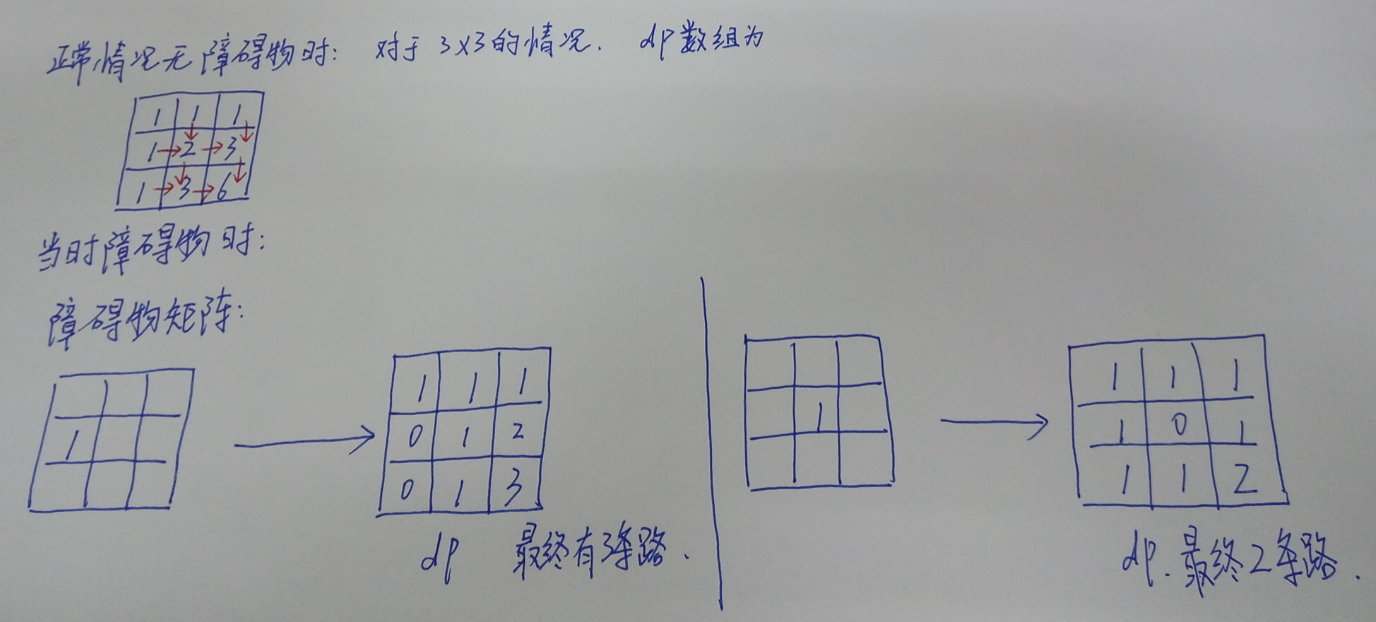 正常情况无障碍物时: 对于 3x3的情况. dp数组为
1 1 1
1→2→3
1→3→6
当时障碍物时:
障碍物矩阵:
1
1 1 1
0 1 2
0 1 3
dp 最终有3条路.
1
1 1 1
1 0 1
1 1 2
dp. 最终2条路.